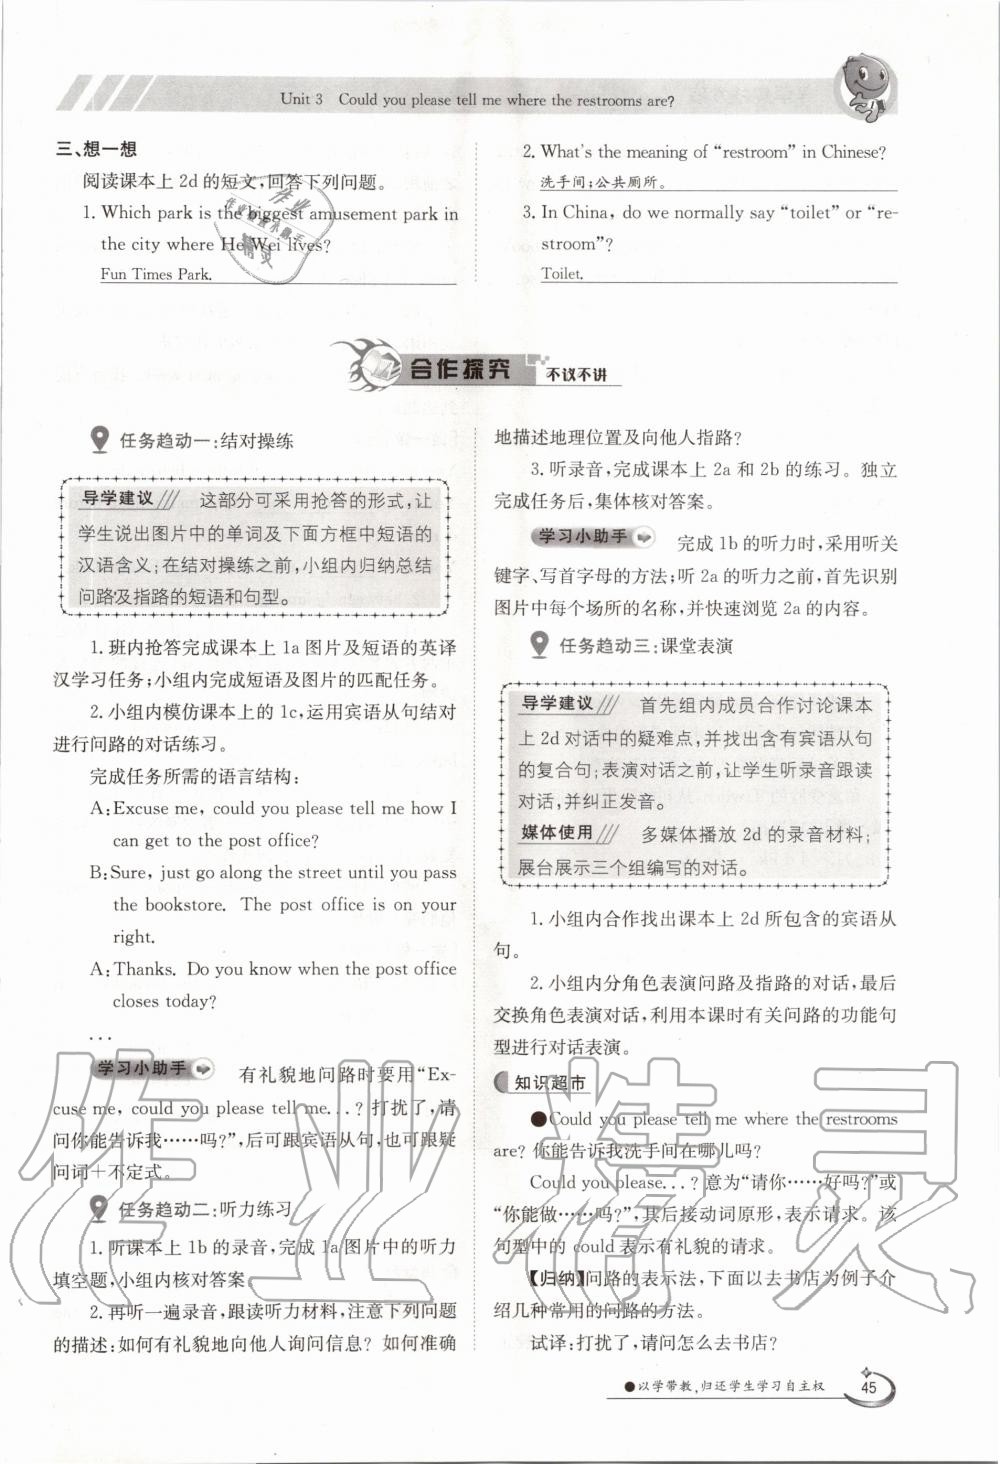 Unit 3 Could you please tell me where the restrooms are?
三、想一想
阅读课本上 2d 的短文,回答下列问题。
1. Which park is the biggest amusement park in
the city where He Wei lives?
Fun Times Park.
2. What's the meaning of “restroom” in Chinese?
洗手间;公共厕所。
3. In China, do we normally say “toilet” or “re-
stroom”?
Toilet.
合作探究 不议不讲
任务趋动一:结对操练
导学建议 这部分可采用抢答的形式,让
学生说出图片中的单词及下面方框中短语的
汉语含义;在结对操练之前,小组内归纳总结
问路及指路的短语和句型。
1. 班内抢答完成课本上 1a 图片及短语的英译
汉学习任务;小组内完成短语及图片的匹配任务。
2. 小组内模仿课本上的 1c,运用宾语从句结对
进行问路的对话练习。
完成任务所需的语言结构:
A: Excuse me, could you please tell me how I
can get to the post office?
B: Sure, just go along the street until you pass
the bookstore. The post office is on your
right.
A: Thanks. Do you know when the post office
closes today?
...
学习小助手 有礼貌地问路时要用“Ex-
cuse me, could you please tell me...? 打扰了,请
问你能告诉我……吗?”,后可跟宾语从句,也可跟疑
问词+不定式。
任务趋动二:听力练习
1. 听课本上 1b 的录音,完成 1a 图片中的听力
填空题,小组内核对答案。
2. 再听一遍录音,跟读听力材料,注意下列问题
的描述:如何有礼貌地向他人询问信息? 如何准确
地描述地理位置及向他人指路?
3. 听录音,完成课本上 2a 和 2b 的练习。独立
完成任务后,集体核对答案。
学习小助手 完成 1b 的听力时,采用听关
键字、写首字母的方法;听 2a 的听力之前,首先识别
图片中每个场所的名称,并快速浏览 2a 的内容。
任务趋动三:课堂表演
导学建议 首先组内成员合作讨论课本
上 2d 对话中的疑难点,并找出含有宾语从句
的复合句;表演对话之前,让学生听录音跟读
对话,并纠正发音。
媒体使用 多媒体播放 2d 的录音材料;
展台展示三个组编写的对话。
1. 小组内合作找出课本上 2d 所包含的宾语从
句。
2. 小组内分角色表演问路及指路的对话,最后
交换角色表演对话,利用本课时有关问路的功能句
型进行对话表演。
知识超市
●Could you please tell me where the restrooms
are? 你能告诉我洗手间在哪儿吗?
Could you please...? 意为“请你……好吗?”或
“你能做……吗?”,其后接动词原形,表示请求。该
句型中的 could 表示有礼貌的请求。
【归纳】问路的表示法,下面以去书店为例子介
绍几种常用的问路的方法。
试译:打扰了,请问怎么去书店?
●以学带教,归还学生学习自主权 45
作业精灵